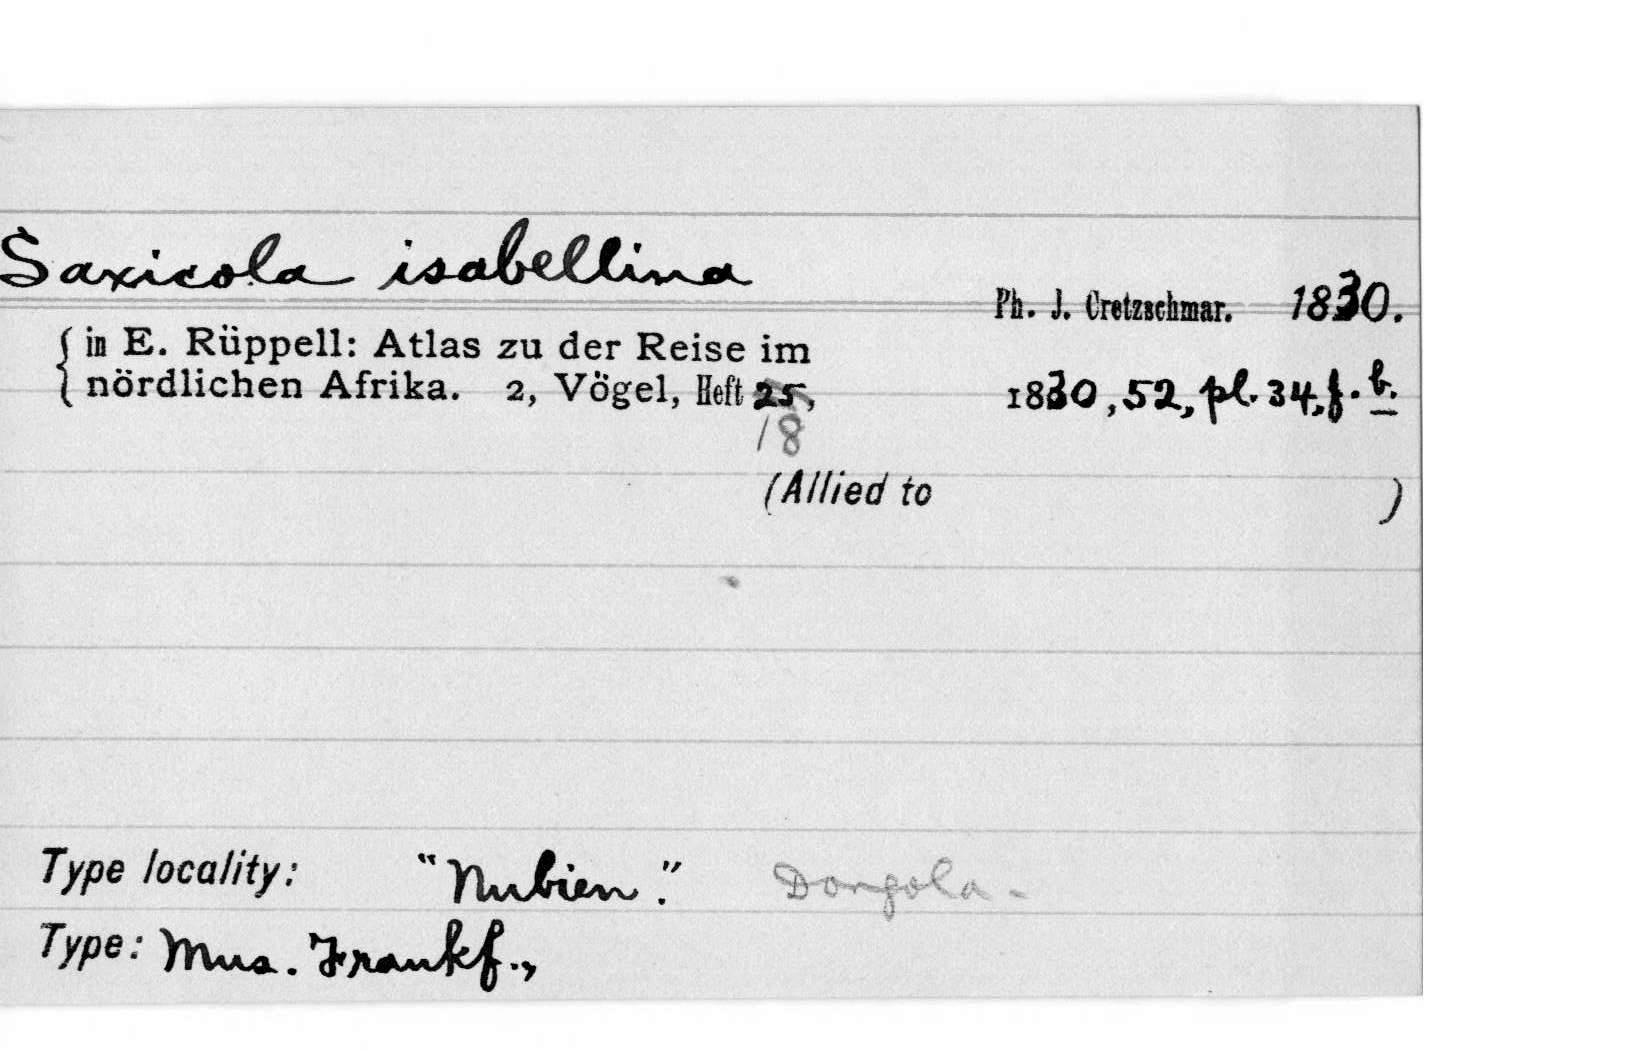 Saxicola isabellina
Ph. J. Cretzschmar. 1830.
{in E. Rüppell: Atlas zu der Reise im
nördlichen Afrika. 2, Vögel, Heft 25, 1830, 52, pl. 34, f. b.
18
(Allied to )
Type locality: "Nubien." Dongola.
Type: Mus. Frankf.,